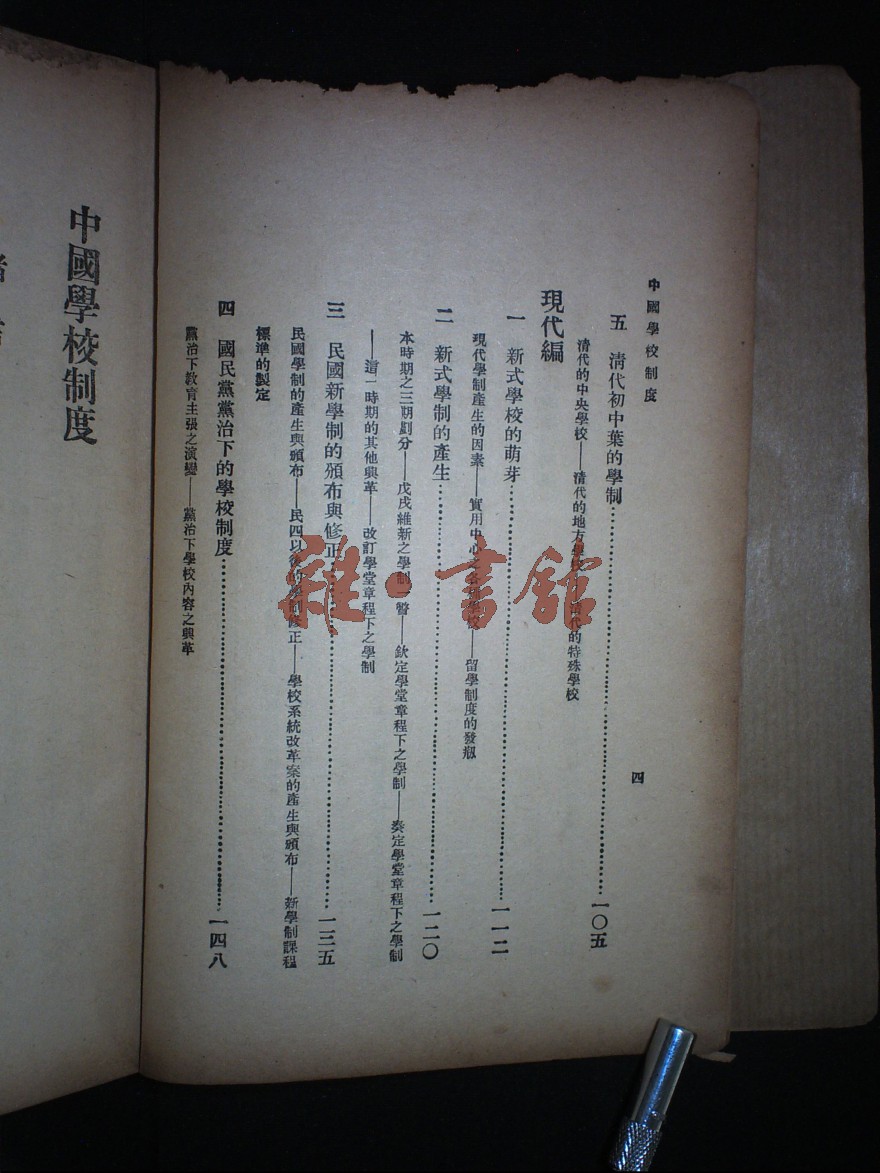 中國學校制度
四
五 清代初中葉的學制……一〇五
清代的中央學校——清代的地方學校——清代的特殊學校
現代編
一 新式學校的萌芽……一一二
現代學制產生的因素——實用中心之各種學校——留學制度的發軔
二 新式學制的產生……一二〇
本時期之三期劃分——戊戌維新之學制一瞥——欽定學堂章程下之學制——奏定學堂章程下之學制
——這一時期的其他興革——改訂學堂章程下之學制
三 民國新學制的頒布與修正……一三五
民國學制的產生與頒布——民四以後的學制修正——學校系統改革案的產生與頒布——新學制課程
標準的製定
四 國民黨黨治下的學校制度……一四八
黨治下教育主張之演變——黨治下學校內容之興革
中國學校制度
雜·書館